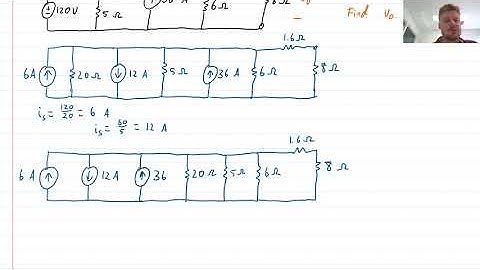 120V 5Ω 36 A 6Ω
Find v₀
1.6 Ω
6A 20Ω 12 A 5Ω 36 A 6Ω 8Ω
iₛ = 120/20 = 6 A
iₛ = 60/5 = 12 A
1.6Ω
6 A 12A 36 20Ω 5Ω 6Ω 8 Ω